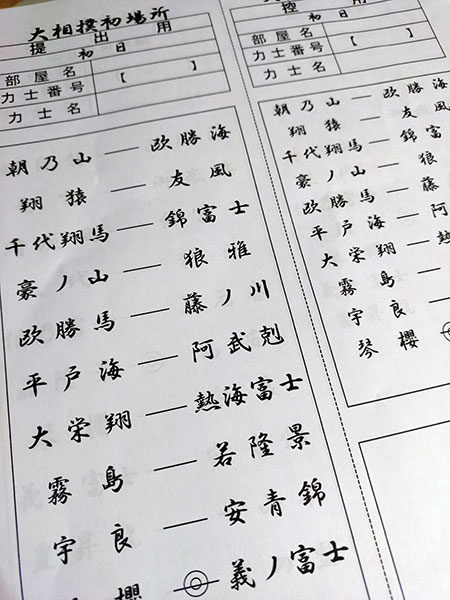 大相撲初場所
提出用
初日
部屋名
力士番号 【 】
力士名
朝乃山 — 欧勝海
翔猿 — 友風
千代翔馬 — 錦富士
豪ノ山 — 狼雅
欧勝馬 — 藤ノ川
平戸海 — 阿武剋
大栄翔 — 熱海富士
霧島 — 若隆景
宇良 — 安青錦
櫻 — ◎ — 義ノ富士
控用
初日
部屋名
力士番号 【 】
力士名
朝乃山 — 欧勝海
翔猿 — 友風
千代翔馬 — 錦富
豪ノ山 — 狼
欧勝馬 — 藤
平戸海 — 阿
大栄翔 — 熱
霧島 —
宇良 —
琴櫻 ◎